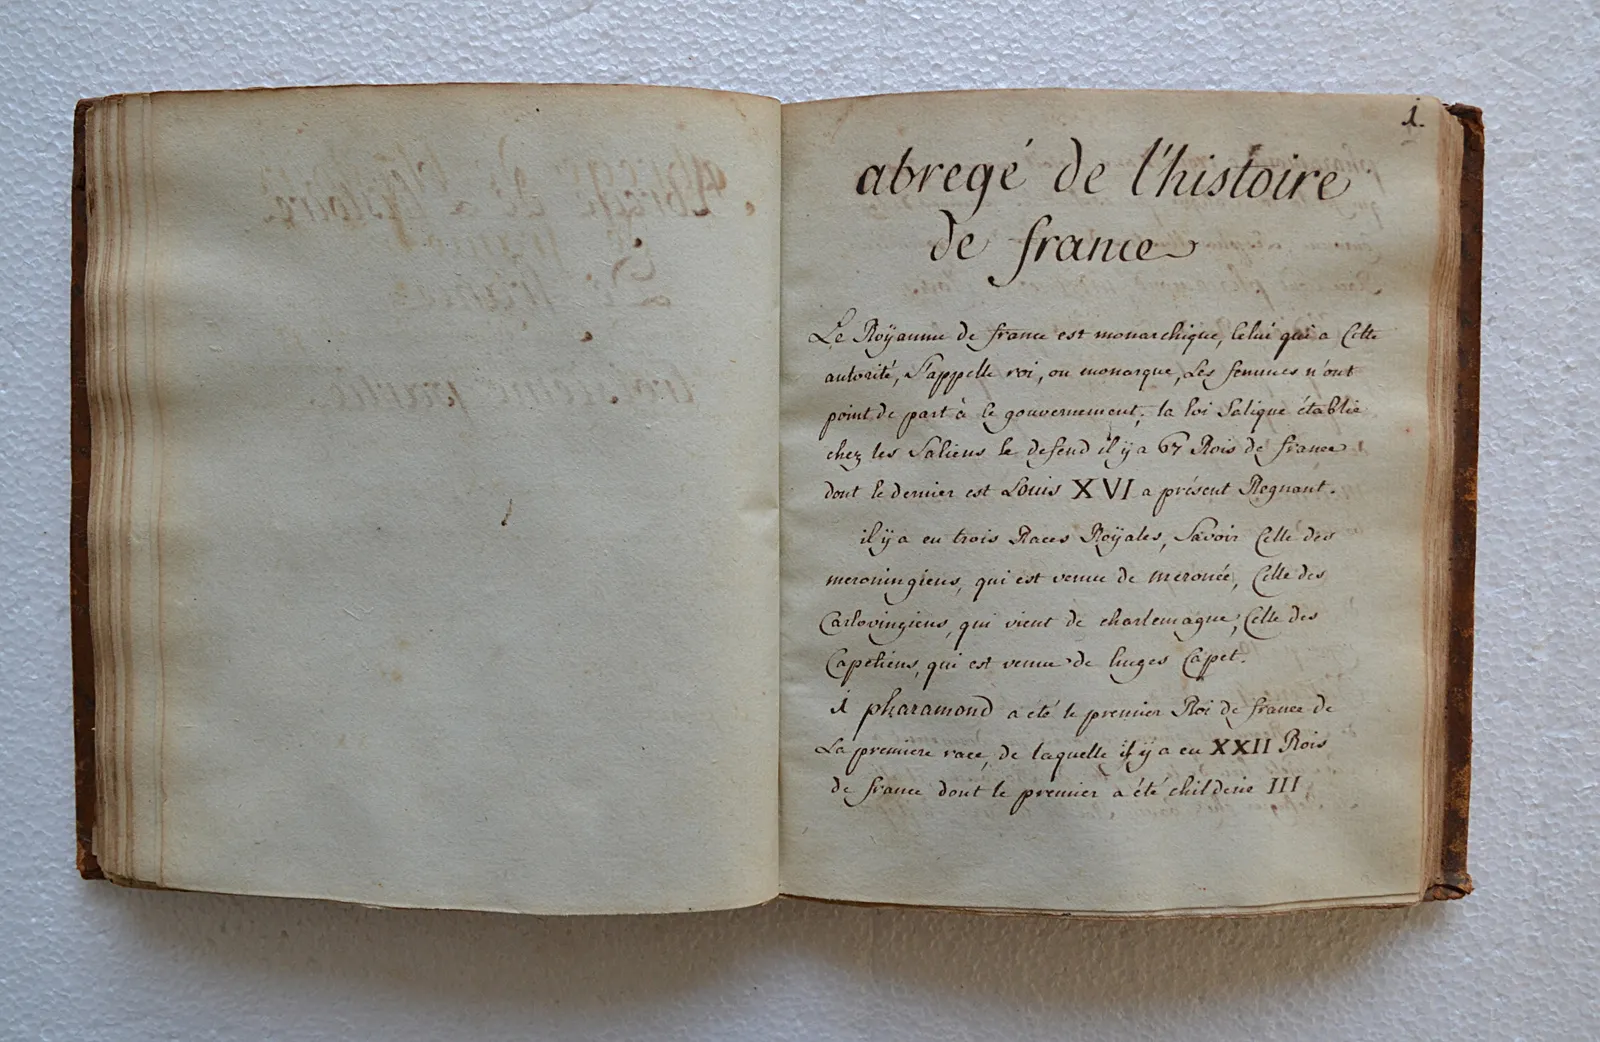 1.
abregé de l'histoire
de france
Le Roÿaume de france est monarchique, Celui qui a Cette
autorité, S'appelle roi, ou monarque, Les femmes n'ont
point de part à le gouvernement; la loi Salique établie
chez les Saliens le defend il ÿ a 67 Rois de france
dont le dernier est Louis XVI a présent Regnant.
il ÿ a eu trois Races Roÿales, Savoir Celle des
merovingiens, qui est venue de merovée, Celle des
Carlovingiens, qui vient de charlemagne, Celle des
Capetiens, qui est venue de huges Capet.
1 pharamond a été le premier Roi de france de
La premiere race, de laquelle il ÿ a eu XXII Rois
de france dont le premier a été childeric III